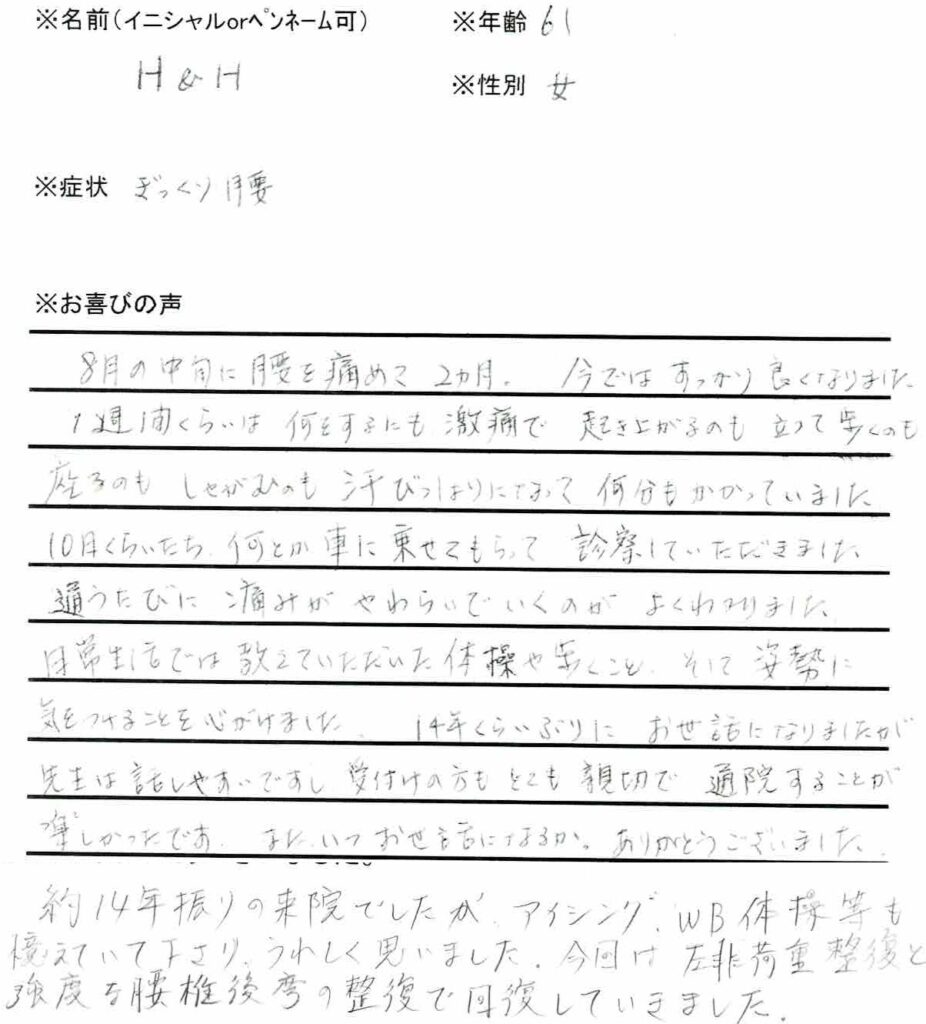 ※名前(イニシャルorペンネーム可)
※年齢 61
H & H
※性別 女
※症状 ぎっくり腰
※お喜びの声
8月の中旬に腰を痛めて2カ月。 今ではすっかり良くなりました
1週間くらいは何をするにも激痛で 起き上がるのも 立って歩くのも
座るのも しゃがむのも 汗びっしょりになって 何分もかかっていました
10日くらいたち、何とか車に乗せてもらって 診察していただきました。
通うたびに 痛みが やわらいでいくのが よくわかりました。
日常生活では教えていただいた体操や歩くこと、そして 姿勢に
気をつけることを心がけました。 14年くらいぶりに お世話になりましたが
先生は話しやすいですし、受付けの方もとても親切で 通院することが
楽しかったです。 また、いつお世話になるか。ありがとうございました。
約14年振りの来院でしたが、アイシング、WB体操等も
憶えていて下さり、うれしく思いました。今回は 左非荷重整復と
強度な腰椎後弯の整復で回復していきました。